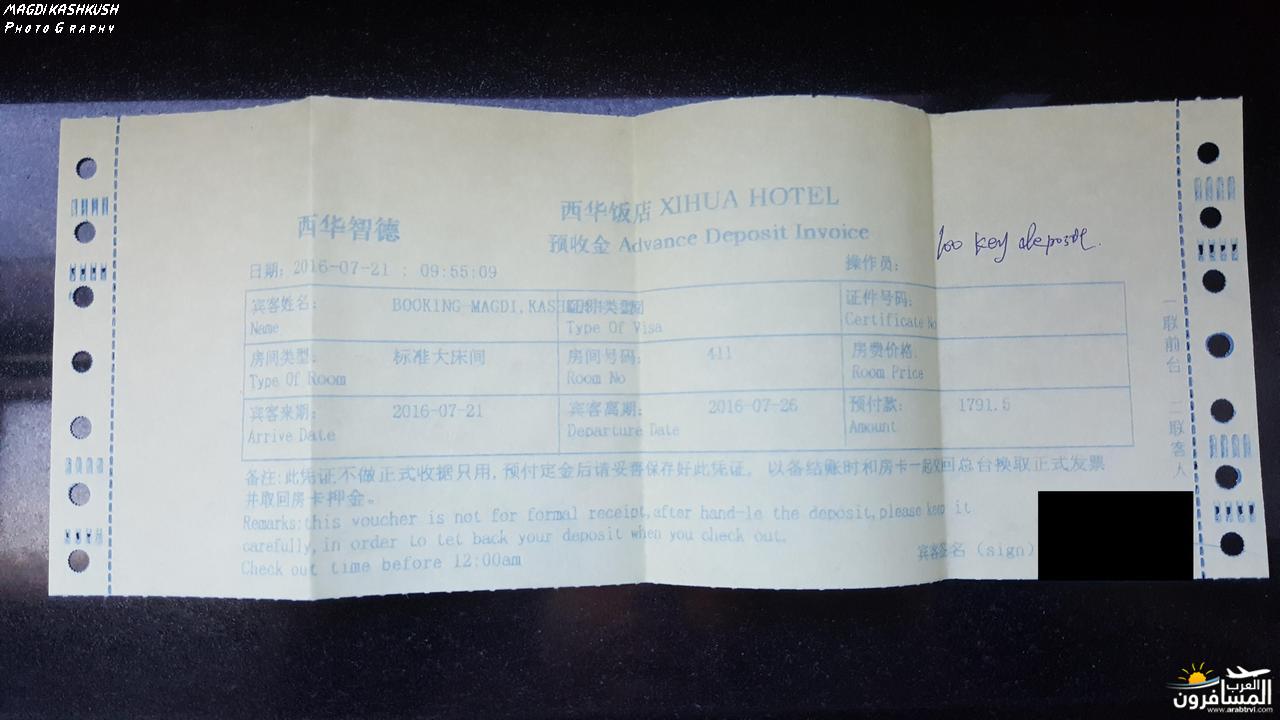 MAGDI KASHKUSH
PHOTOGRAPHY
西华智德
西华饭店 XIHUA HOTEL
预收金 Advance Deposit Invoice
100 key deposit.
日期: 2016-07-21 : 09:55:09
操作员:
宾客姓名: BOOKING MAGDI,KAS
Name
证件类型:
Type Of Visa
证件号码:
Certificate No
房间类型: 标准大床间
Type Of Room
房间号码: 411
Room No
房费价格:
Room Price
宾客来期: 2016-07-21
Arrive Date
宾客离期: 2016-07-26
Departure Date
预付款: 1791.5
Amount
一联前台 二联客人
备注:此凭证不做正式收据只用,预付定金后请妥善保存好此凭证。 以备结账时和房卡一起交回总台换取正式发票
并取回房卡押金。
Remarks:this voucher is not for formal receipt,after hand-le the deposit,please keep it
carefully,in order to tet back your deposit when you check out.
Check out time before 12:00am
宾客签名 (sign)
العرب
المسافرون
www.arabtrvl.com